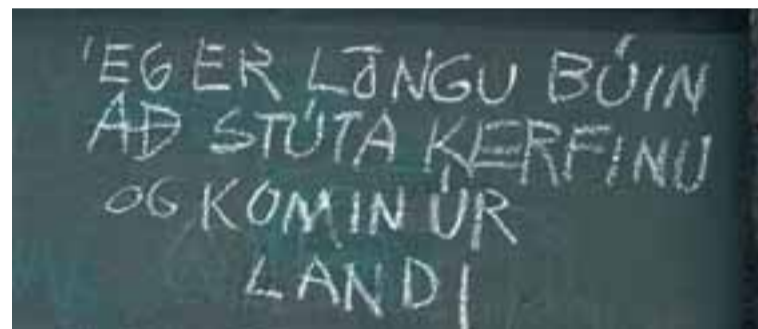 ÉG ER LÖNGU BÚIN
AÐ STÚTA KERFINU
OG KOMIN ÚR
LANDI